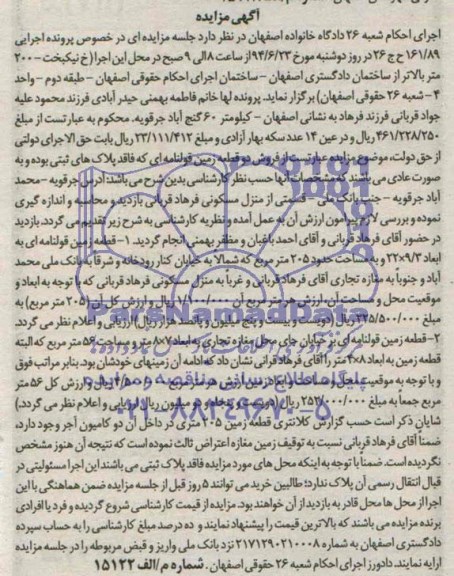 آگهی مزایده
اجرای احکام شعبه ۲۶ دادگاه خانواده اصفهان در نظر دارد جلسه مزایده ای در خصوص پرونده اجرایی
۱۶۱/۸۹ ح ج ۲۶ در روز دوشنبه مورخ ۹۴/۶/۲۳ از ساعت ۸ الی ۹ صبح در محل این اجرا (خ نیکبخت - ۲۰۰
متر بالاتر از ساختمان دادگستری اصفهان - ساختمان اجرای احکام حقوقی اصفهان - طبقه دوم - واحد
۴ - شعبه ۲۶ حقوقی اصفهان) برگزار نماید. پرونده لها خانم فاطمه بهمنی حیدر آبادی فرزند محمود علیه
جواد قربانی فرزند فرهاد به نشانی اصفهان - کیلومتر ۶۰ گنج آباد جرقویه. محکوم به عبارتست از مبلغ
۴۶۱/۲۲۸/۲۵۰ ریال و در عین ۱۴ عدد سکه بهار آزادی و مبلغ ۲۳/۱۱۱/۴۱۲ ریال بابت حق الاجرای دولتی
از حق دولت، موضوع مزایده عبارتست از فروش دو قطعه زمین قولنامه ای که فاقد پلاک های ثبتی بوده و به
صورت عادی می باشند که مشخصات آنها حسب نظر کارشناسی بدین شرح می باشد: آدرس جرقویه - محمد
آباد جرقویه - جنب بانک ملی - قسمتی از منزل مسکونی فرهاد قربانی بازدید و محاسبه و اندازه گیری
نموده و بررسی لازم پیرامون ارزش آن به عمل آمده و نظریه کارشناسی به شرح زیر تقدیم می گردد. بازدید
در حضور آقای فرهاد قربانی و آقای احمد باغبان و مظفر بهمنی انجام گردید. ۱- قطعه زمین قولنامه ای به
ابعاد ۹/۳×۲۲ و به مساحت حدود ۲۰۵ متر مربع که شمالا به خیابان کنار رودخانه و شرقا به بانک ملی محمد
آباد و جنوباً به مغازه تجاری آقای فرهاد قربانی و غرباً به منزل مسکونی فرهاد قربانی که با توجه به ابعاد و
موقعیت محل و مساحت آن، ارزش هر متر مربع آن ۱/۱۰۰/۰۰۰ ریال و ارزش کل آن (۲۰۵ متر مربع) به
مبلغ ۲۲۵/۵۰۰/۰۰۰ ریال (دویست و بیست و پنج میلیون و پانصد هزار ریال) ارزیابی و اعلام نظر می گردد.
۲- قطعه زمین قولنامه ای بر خیابان جای محل مغازه تجاری به ابعاد ۷×۸ متر و مساحت ۵۶ متر مربع که البته
قطعه زمین به ابعاد ۸×۴ متر را آقای فرهاد قربانی نشان داد که ادامه آن زمینهای خودشان بود. بنابر مراتب فوق
و با توجه به موقعیت محل و مساحت و ابعاد زمین ارزش هر متر مربع ریال و ارزش کل ۵۶ متر
مربع جمعاً به مبلغ ۲۵۲/۰۰۰/۰۰۰ ریال (دویست و پنجاه و دو میلیون ریال) ارزیابی و اعلام نظر می گردد.)
شایان ذکر است حسب گزارش کلانتری قطعه زمین ۲۰۵ متری در داخل آن دو کامیون آجر وجود دارد،
ضمناً آقای فرهاد قربانی نسبت به توقیف زمین مغازه اعتراض ثالث نموده است که نتیجه آن هنوز مشخص
نگردیده است. ضمناً با توجه به اینکه محل های مورد مزایده فاقد پلاک ثبتی می باشند این اجرا مسئولیتی در
قبال انتقال رسمی آن پلاک ندارد؛ طالبین خرید می توانند ۵ روز قبل از جلسه مزایده ضمن هماهنگی با این
اجرا از محل ها محل قادر به بازدید از آن خواهند بود. مزایده از قیمت کارشناسی شروع گردیده و فرد یا افرادی
برنده مزایده می باشند که بالاترین قیمت را پیشنهاد نمایند و ده درصد مبلغ کارشناسی را به حساب سپرده
دادگستری اصفهان به شماره ۲۱۷۱۲۹۰۲۱۰۰۰۸ نزد بانک ملی واریز و قبض مربوطه را در جلسه مزایده
ارایه نمایند. دادورز اجرای احکام شعبه ۲۶ حقوقی اصفهان. شماره م/الف ۱۵۱۲۲
ParsNamadData
پایگاه اطلاع رسانی مناقصه و مزایده
۰۲۱-۸۸۳۴۹۶۷۰-۵